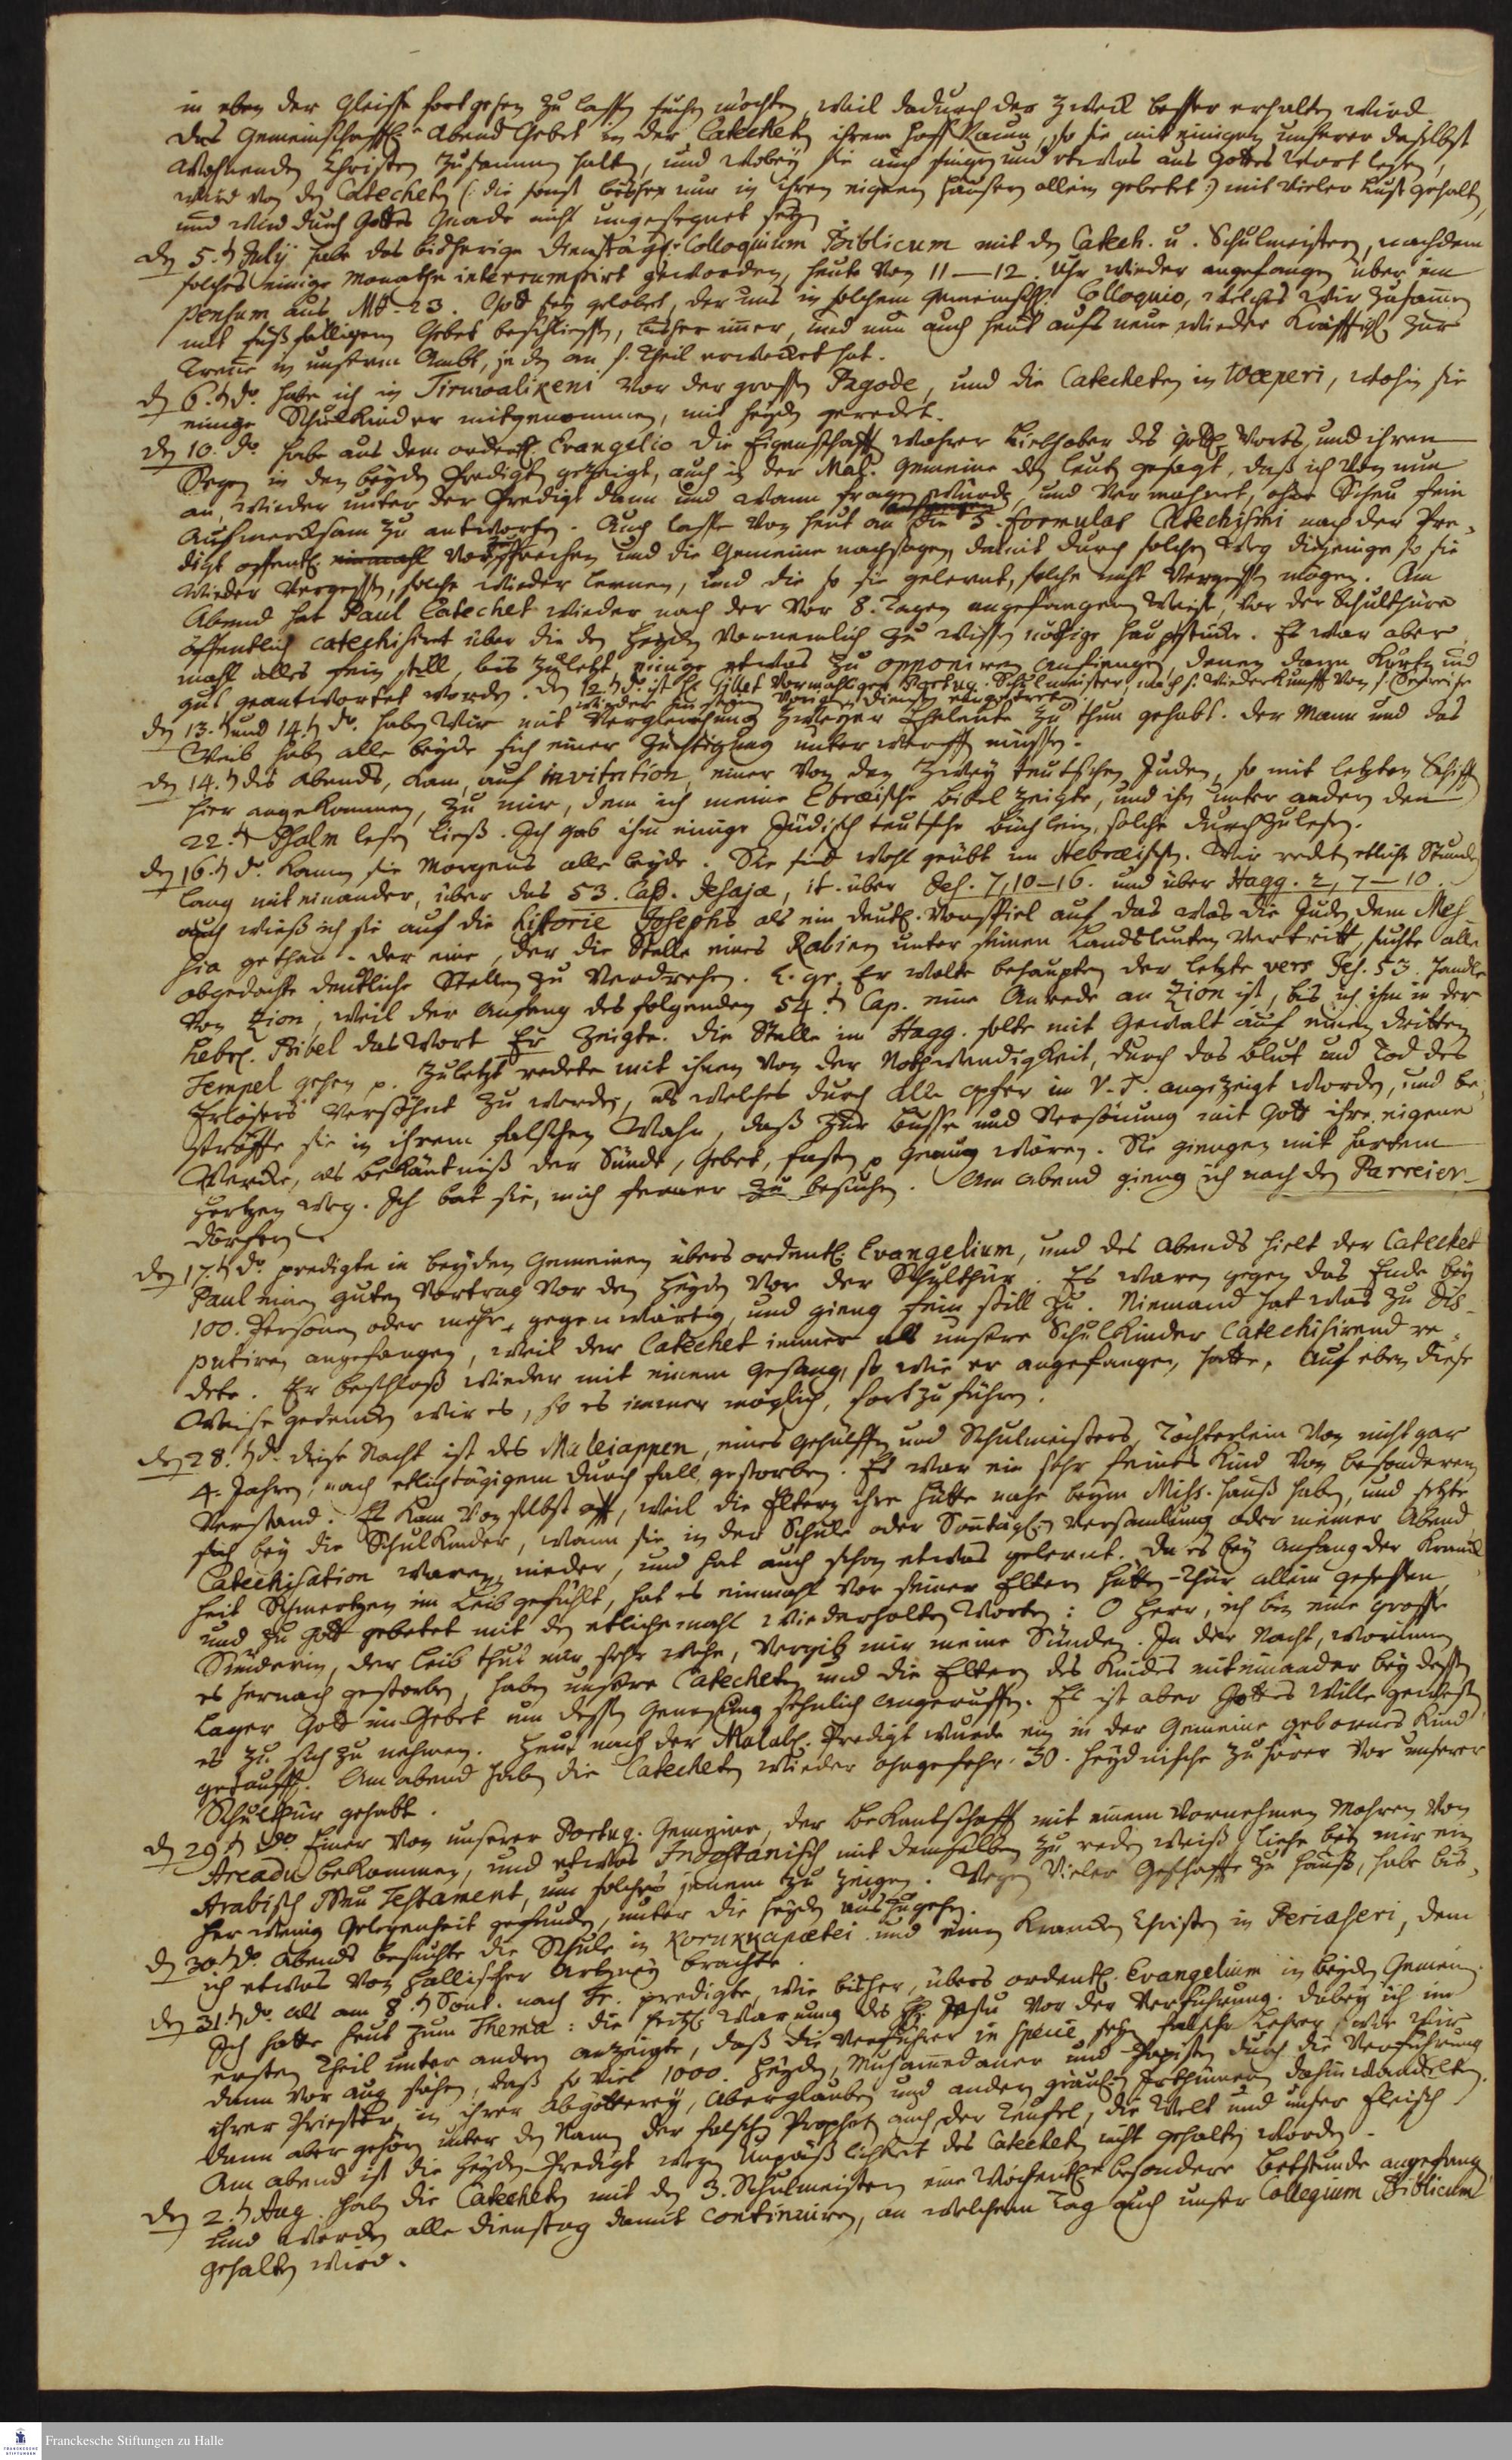 in eben der Gleisse fortgehen zu lassen suchen möchten, weil dadurch der Zweck besser erhalten wird
Das Gemeinschafftl. Abend Gebet in der Catecheten ihrem hoff Raum, so sie mit einigen unserer daselbst
wohnenden Christen zusammen halten, und wobey sie auch singen und etwas aus Gottes Wort lesen,
wird von den Catecheten (: die sonst bisher nur in ihren eigenen Häusern allein gebetet :) mit vieler Lust gehalten,
und wird durch Gottes Gnade nicht ungesegnet seyn.
den 5.ten July habe das bisherige Dienstägl. Colloquium Biblicum mit den Catech. u. Schulmeistern, nachdem
solches einige Monathe interrumpirt geworden, heute von 11–12. Uhr wieder angefangen über ein
pensum aus Mt. 23. Gott sey gelobet, der uns in solchem gemeinschl. Colloquio, welches wir zusamen
mit fußfälligem Gebet beschliessen, bisher imer, und nun auch heut aufs neue wieder kräfftigl. zur
Treue in unserm Ambt, jeden an s. Theil erwecket hat.
den 6.ten do. habe ich in Tiruwalikeni vor der grossen Pagode, und die Catecheten in Weperi, wohin sie
einige Schulkinder mitgenommen, mit Heyden geredet.
den 10. do. habe aus dem ordentl. Evangelio die Eigenschafft wahrer Liebhaber des Göttl. Worts und ihren
Segen in den beyden Predigten gezeigt, auch in der Mal. Gemeine den Leuten gesagt, daß ich von nun
an wieder unter der Predigt dann und wann fragen würde, und vermahnet, ohne Scheu fein
aufmercksam zu antworten. Auch lasse von heut an die 5. formulas Catechismi nach der Pre-
digt öffentl. einmahl vorsprechen und die Gemeine nachsagen, damit durch solchen Weg diejenige so sie
wieder vergessen, solche wieder lernen, und die so sie gelernt, solche nicht vergessen mögen. Am
Abend hat Paul Catechet wieder nach der vor 8. Tagen angefangenen Weise, vor der Schulthüre
öffentlich catechisiret über die den Heyden vornemlich zu wissen nöthige Hauptstücke. Es war aber
mahl alles fein still, bis zuletzt einige etwas zu opponiren anfiengen, denen dann kurtz und
gut geantwortet worden. den 12.ten do. ist H. Gillet vormahliger Portug. Schulmeister, nach s. Wiederkunfft von s. Seereise
wieder in seinen vorigen Dienst eingetreten.
den 13.ten und 14.ten do. haben wir mit Vergleichung zweyer Eheleute zu thun gehabt. der Mann und das
Weib haben alle beyde sich einer Züchtigung unterwerffen müssen.
den 14.ten des Abends, kam, auf invitation, einer von den zwey teutschen Juden, so mit letzten Schiff
hier angekommen, zu mir, dem ich meine Ebræische Bibel zeigte, und ihn unter andern den
22.ten Psalm lesen ließ. Ich gab ihm einige Jüdisch teutsche büchlein, solche durchzulesen.
den 16.ten do. kamen sie Morgens alle beyde. Sie sind wohl geübt im Hebræischen. Wir redeten etliche Stunden
lang miteinander, über das 53. Cap. Jesajæ, it. über Jes. 7, 10–16. und über Hagg. 2, 7–10.
auch wieß ich sie auf die historie Josephs als ein deutl. Vorspiel auf das was die Juden dem Mes-
sia gethan. der eine, der die Stelle eines Rabinen unter seinen Landsleuten vertritt, suchte alle
obgedachte deutliche Stellen zu verdrehen. E. gr. Er wolte behaupten der letzte vers Jes. 53. handle
von Zion, weil der Anfang des folgenden 54.ten Cap. eine Anrede an Zion ist, bis ich ihm in der
hebr. Bibel das Wort Er zeigte. Die Stelle im Hagg. solte mit Gewalt auf einen dritten
Tempel gehen p. Zuletzt redete mit ihnen von der Nothwendigkeit, durch das Blut und Tod des
Erlösers versöhnt zu werden, als welches durch alle opfer im V. T. angezeigt worden, und be-
straffte sie in ihrem falschen Wahn, daß zur busse und versönung mit Gott ihre eigene
Wercke, als bekäntniß der Sünde, Gebet, fasten p genug wären. Sie giengen mit hartem
Hertzen weg. Ich bat sie, mich ferner zu besuchen. Am Abend gieng ich nach den Parreier-
dörfern.
den 17.ten do. predigte in beyden Gemeinen übers ordentl. Evangelium, und des Abends hielt der Catechet
Paul einen guten Vortrag vor den Heyden vor der Schulthür. Es waren gegen das Ende bey
100. Personen oder mehr, gegenwärtig, und gieng fein still zu. Niemand hat was zu dis-
putiren angefangen, weil der Catechet immer als unsere Schulkinder catechisirend re-
dete. Er beschloß wieder mit einem Gesang, so wie er angefangen hatte. Auf eben diese
Weise gedencken wir es, so es immer möglich, fortzuführen.
den 28.ten do. diese Nacht ist des Maleiappen, eines Gehülffen und Schulmeisters, Töchterlein von nicht gar
4. Jahren, nach etlichtägigem durchfall gestorben. Es war ein sehr feines Kind von besonderem
Verstand. Es kam von selbst offt, weil die Eltern ihre Hütte nahe beym Miss. Hauß haben, und setzte
sich bey die Schulkinder, wann sie in der Schule oder Sontägl. versamlung oder meiner Abend
Catechisation waren, nieder, und hat auch schon etwas gelernt. Da es bey Anfang der Kranck-
heit Schmertzen im Leib gefühlt, hat es einmahl vor seiner Eltern Hütten-Thür allein gesessen,
und zu Gott gebetet mit den etlichemahl wiederholten Worten: O Herr, ich bin eine grosse
Sünderin, der Leib thut mir sehr wehe, vergib mir meine Sünden. In der Nacht, worinnen
es hernach gestorben, haben unsere Catecheten und die Eltern des Kindes miteinander bey dessen
Lager Gott im Gebet um dessen Genesung sehnlich angeruffen. Es ist aber Gottes Wille gewesen
es zu sich zu nehmen. Heut nach der Malab. Predigt wurde ein in der Gemeine gebornes Kind
getaufft. Am Abend haben die Catecheten wieder ohngefehr 30. Heydnische Zuhörer vor unserer
Schulthür gehabt.
den 29.ten do. Einer von unserer Portug. Gemeine, der bekantschafft mit einem vornehmen Mohren von
Arcadu bekommen, und etwas Indostanisch mit demselben zu reden weiß, liehe bey mir ein
Arabisch Neu Testament, um solches jenem zu zeigen. Wegen vieler Geschäffte zu Hauß, habe bis-
her wenig Gelegenheit gefunden, unter die Heyden auszugehen.
den 30.ten do. Abends besuchte die Schule in Korukkapætei und einen krancken Christen in Periaseri, dem
ich etwas von Hallischer Artzney brachte.
den 31.ten do. als am 8.ten Sont. nach Tr. predigte, wie bisher, übers ordentl. Evangelium in beyden Gemein.
Ich hatte heut zum Thema: die Warnung des H. Jesu vor der Verführung. dabey ich im
ersten Theil unter andern anzeigte, daß die Verführer in specie seyn falsche Lehrer, wie wir
dann vor aug sähen, daß so viel 1000. Heyden, Muhamedaner und Papisten durch die Verführung
ihrer Priester in ihrer Abgötterey, Aberglauben und andern greulichen Irthümern dahin wandelten.
dann aber gehörn unter den Namen der falschen Propheten auch der Teufel, die Welt und unser Fleisch.
Am abend ist die Heyden-Predigt wegen Unpäßlichkeit des Catecheten nicht gehalten worden.
den 2.ten Aug. haben die Catecheten mit den 3. Schulmeistern eine Wöchentl. besondere Betstunde angefangen
und werden alle Dienstag damit continuiren, an welchem Tag auch unser Collegium Biblicum
gehalten wird.
Franckesche Stiftungen zu Halle